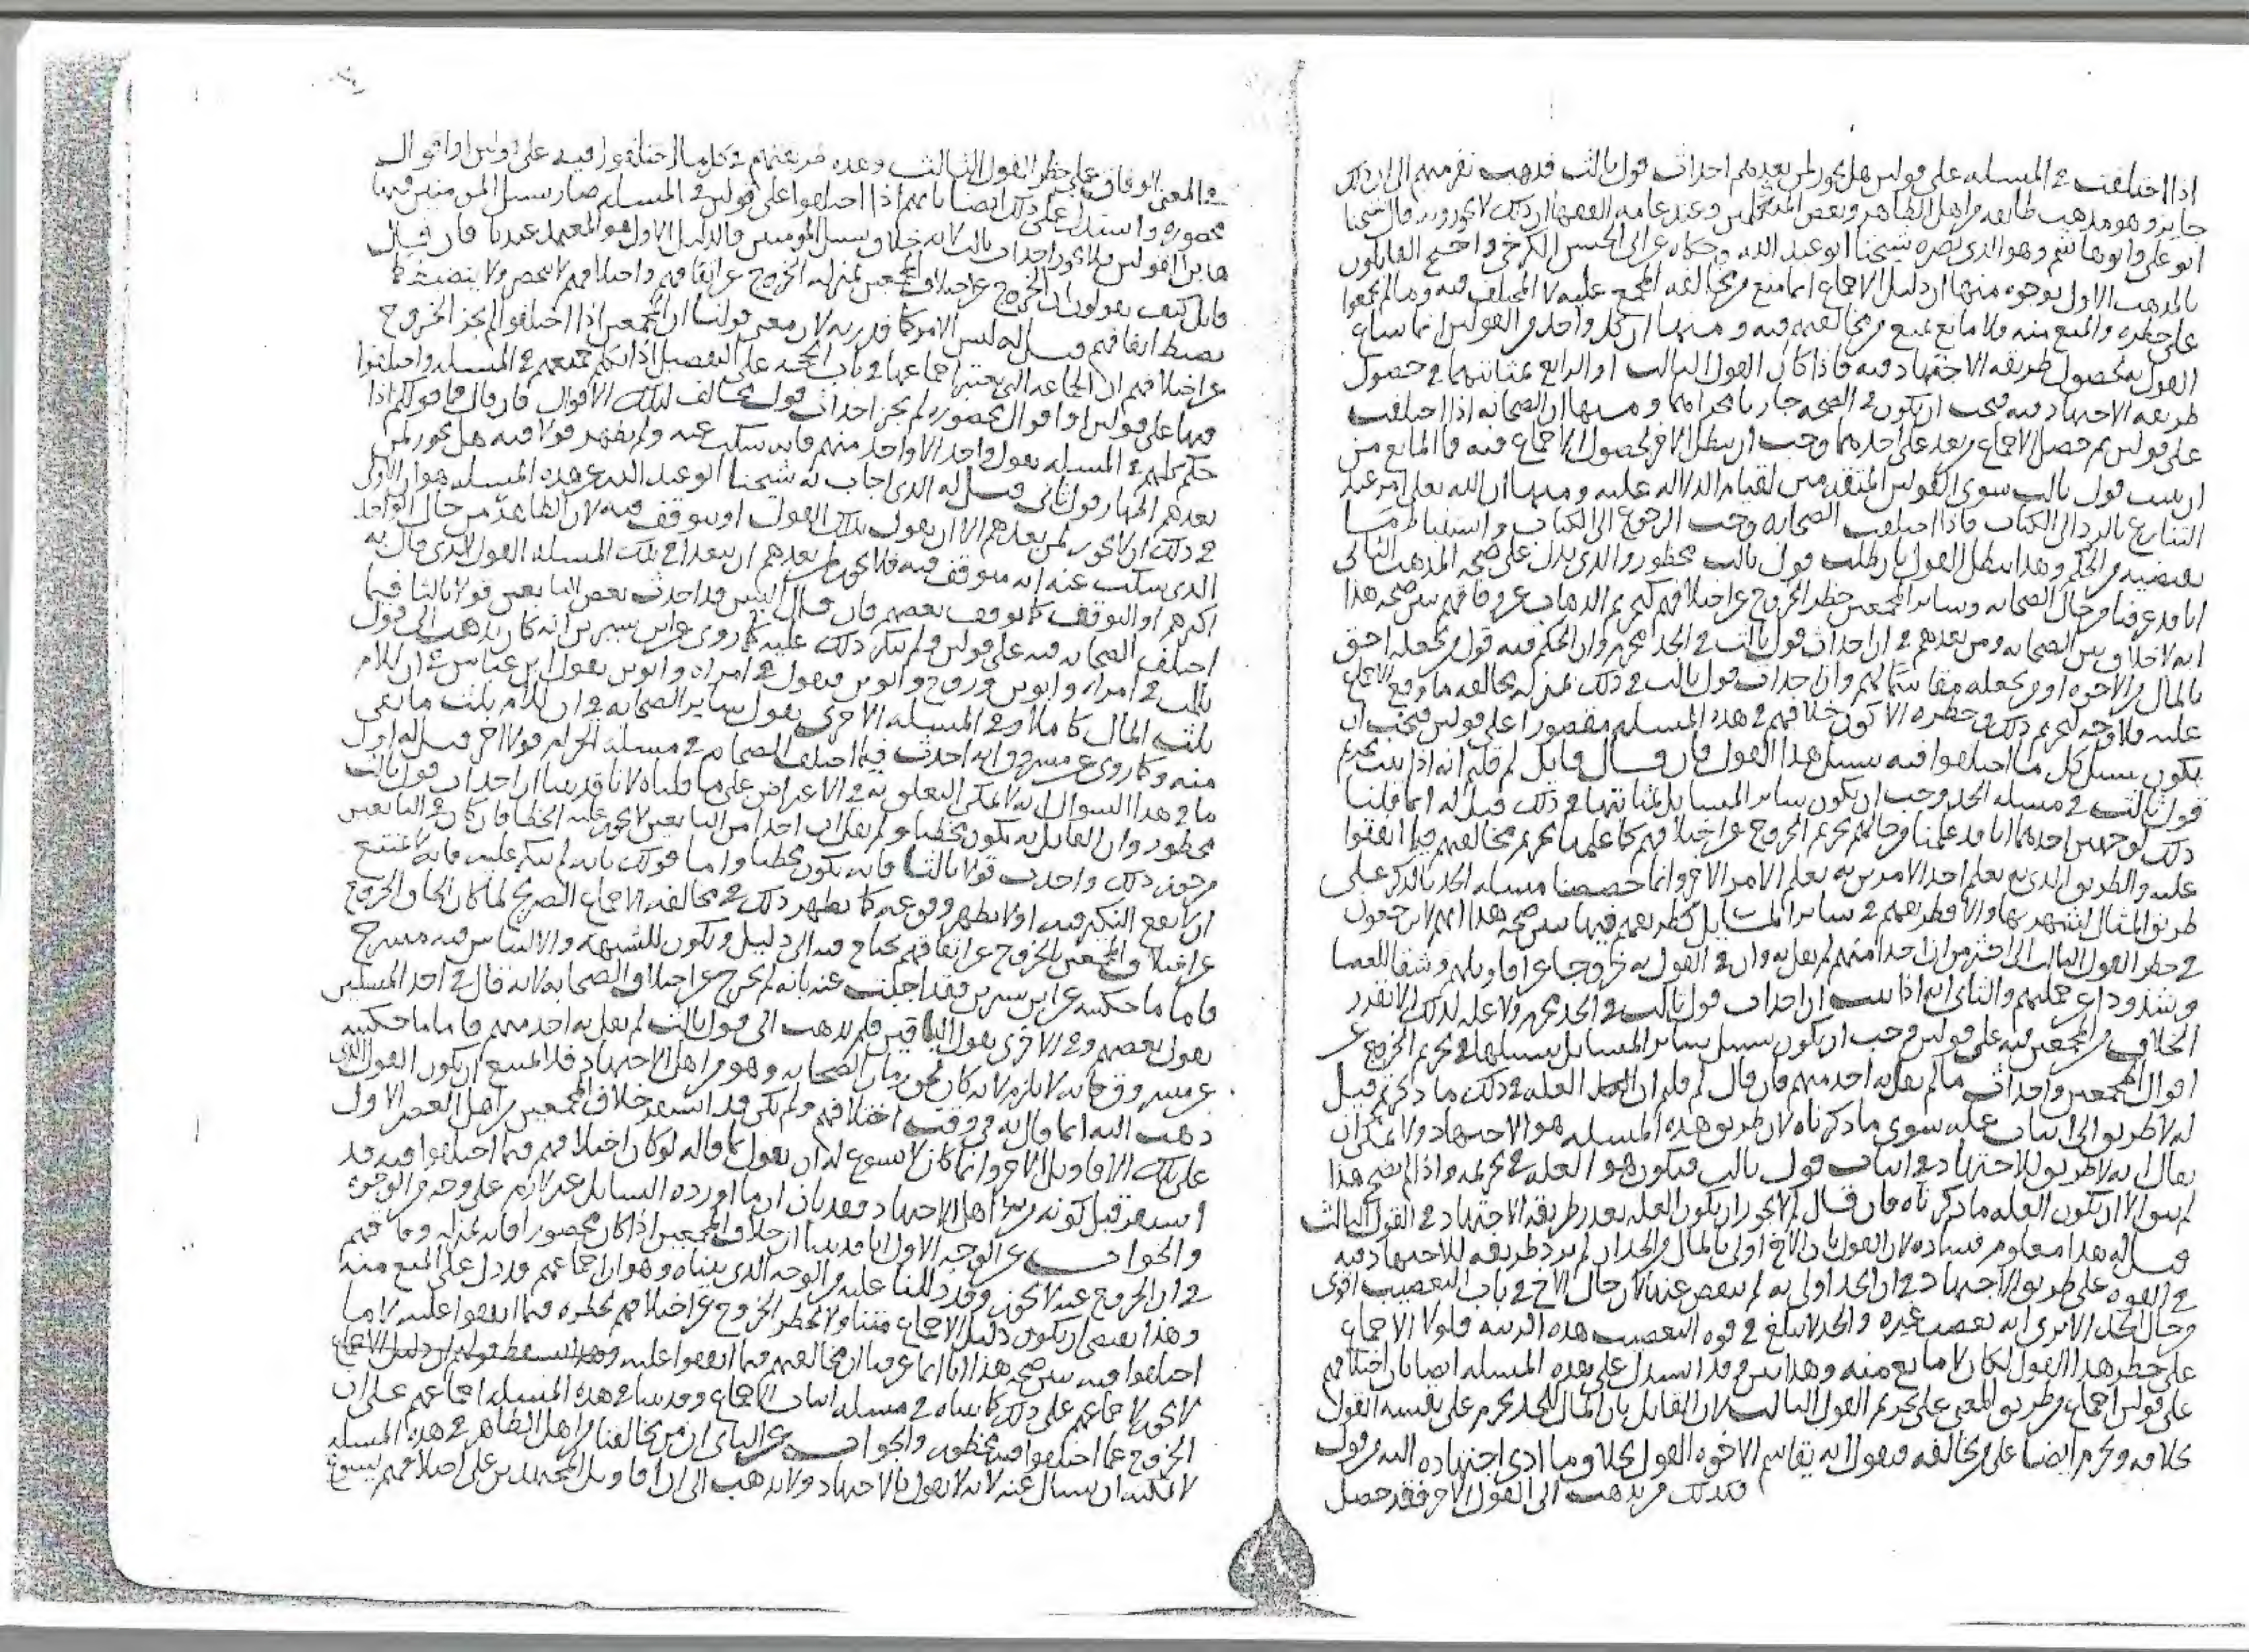 اذا اختلفت في المسله على قولين هل يجوز لمن بعدهم احداث قول ثالث فذهب نفر منهم الى ان ذلك
جايز وهو مذهب طايفه من اهل الظاهر وبعض المتكلمين وعند عامه الفقها ان ذلك لا يجوز وبه قال شيخنا
ابو علي وابو هاشم وهو الذي نصره شيخنا ابو عبد الله وحكاه عن ابي الحسن الكرخي واحتج القايلون
بالمذهب الاول بوجوه منها ان دليل الاجماع انما منع من مخالفه المجمع عليه لا المختلف فيه وما لم يجمعوا
على حظره والمنع منه فلا مانع يمنع من مخالفتهم فيه ومنها ان كل واحد من القولين انما ساغ
القول به لحصول طريقه الاجتهاد فيه فاذا كان القول الثالث او الرابع بمثابتهما في حصول
طريقه الاجتهاد فيه فيجب ان يكون في الصحه جاريا مجراهما ومنها ان الصحابه اذا اختلفت
على قولين ثم حصل الاجماع بعد على احدهما وجب ان يبطل الاخر لحصول الاجماع فيه فما المانع من
ان يثبت قول ثالث سوى القولين المتقدمين لقيام الدلاله عليه ومنها ان الله تعلى امر عند
التنازع بالرد الى الكتاب فاذا اختلفت الصحابه وجب الرجوع الى الكتاب واستنباط ما
يقتضيه من الحكم وهذا يبطل القول بان طلب قول ثالث محظور والذي يدل على صحه المذهب الثاني
انا قد عرفنا من حال الصحابه وساير المجمعين حظر الخروج عن اختلافهم كتحريم الذهاب عن وفاقهم يبين صحه هذا
انه لا خلاف بين الصحابه ومن بعدهم في ان احداث قول ثالث في الجد محرم وان الحكم فيه قول من يجعله احق
بالمال من الاخوه او من يجعله مقاسما لهم وان احداث قول ثالث في ذلك بمنزله مخالفه ما وقع الاجماع
عليه فلا وجه لتحريم ذلك وحظره الا كون خلافهم في هذه المسله مقصورا على قولين فيجب ان
يكون سبيل كل ما اختلفوا فيه سبيل هذا القول فان قال قايل لم قلتم انه اذا ثبت تحريم
قول ثالث في مسله الجد وجب ان يكون ساير المسايل بمثابتها في ذلك قيل له انما قلنا
ذلك لوجهين احدهما انا قد علمنا من حالهم تحريم الخروج عن اختلافهم كما علمنا تحريم مخالفتهم فيما اتفقوا
عليه والطريق الذي به يعلم احد الامرين به يعلم الامر الاخر وانما خصصنا مسله الجد بالذكر على
طريق المثال لشهرتها والا فطريقتهم في ساير المسايل كطريقتهم فيها يبين صحه هذا انهم لا يرجعون
في حظر القول الثالث الى اكثر من ان احدا منهم لم يقل به وان في القول به خروجا عن اقاويلهم وشقا للعصا
وشذوذا عن جملتهم والثاني انه اذا ثبت ان احداث قول ثالث في الجد محرم ولا عله لذلك الا تقدر
الخلاف من المجمعين فيه على قولين وجب ان يكون سبيل ساير المسايل سبيلها في تحريم الخروج عن
اقوال المجمعين واحداث ما لم يقل به احد منهم فان قال لم قلتم ان العله في ذلك ما ذكرتم قيل
له لا طريق الى اثبات عله سوى ما ذكرناه لان طريق هذه المسله هو الاجتهاد ولا يمكن ان
يقال انه لا طريق للاجتهاد في اثبات قول ثالث فيكون هو العله في تحريمه واذا لم يصح هذا
لم يبق الا ان يكون العله ما ذكرناه فان قال لم لا يجوز ان يكون العله تعذر طريقه الاجتهاد في القول الثالث
قيل له هذا معلوم فساده لان القول بان الاخ اولى بالمال من الجد ان لم يزد طريقه للاجتهاد فيه
في القوه على طريق الاجتهاد في ان الجد اولى به لم ينقص عنها لان حال الاخ في باب التعصيب اقوى
من حال الجد الا ترى انه يعصب غيره والجد لا يبلغ في قوه التعصيب هذه الرتبه فلولا الاجماع
على حظر هذا القول لكان لا مانع منه وهذا بين وقد استدل على هذه المسله ايضا بان اختلافهم
على قولين اجماع من طريق المعنى على تحريم القول الثالث لان القايل بان المال للجد يحرم على نفسه القول
بخلافه ويحرم ايضا على من يخالفه فيقول انه يقاسم الاخوه القول بخلاف ما ادى اجتهاده اليه من قول
فكذلك من يذهب الى القول الاخر فقد حصل
في المعنى الوفاق على حظر القول الثالث وهذه طريقتهم في كل ما اختلفوا فيه على قولين او اقوال
محصوره واستدل على ذلك ايضا بانهم اذا اختلفوا على قولين في المسله صار سبيل المومنين فيها
هاذين القولين فلا يجوز احداث ثالث لانه خلاف سبيل المومنين والدليل الاول هو المعتمد عندنا فان قال
قايل كيف يقولون ان الخروج عن اختلاف المجمعين بمنزله الخروج عن اتفاقهم واختلافهم لا ينحصر ولا ينضبط كما
ينضبط اتفاقهم قيل له ليس الامر كما قدرته لان معنى قولنا ان المجمعين اذا اختلفوا لم يجز الخروج
عن اختلافهم ان الجماعه التي يعتبر اجماعها في باب الحجه على التفصيل اذا تكلم جميعهم في المسله واختلفوا
فيها على قولين او اقوال محصوره لم يجز احداث قول مخالف لتلك الاقوال فان قال فما قولكم اذا
حكم كلهم في المسله بقول واحد الا واحد منهم فانه سكت عنه ولم يظهر قولا فيه هل يجوز لمن
بعدهم اظهار قول ثاني قيل له الذي اجاب به شيخنا ابو عبد الله عن هذه المسله هو ان الاولى
في ذلك ان لا يجوز لمن بعدهم الا ان يقول بذلك القول او يتوقف فيه لان الظاهر من حال الواحد
الذي سكت عنه انه متوقف فيه فلا يجوز لمن بعدهم ان يتعدا في تلك المسله القول الذي قال به
اكثرهم او التوقف كما توقف بعضهم فان قال اليس قد احدث بعض التابعين قولا ثالثا فيما
اختلف الصحابه فيه على قولين ولم ينكر ذلك عليه كما روي عن ابن سيرين انه كان يذهب الى قول
ثالث في امراه وابوين وزوج وابوين فيقول في امراه وابوين بقول ابن عباس في ان للام
ثلث المال كاملا وفي المسله الاخرى بقول ساير الصحابه في ان للام ثلث ما بقي
منه وكما روي عن مسروق انه احدث فيما اختلف الصحابه في مسله الحرام قولا اخر قيل له اول
ما في هذا السوال انه لا يمكن التعلق به في الاعراض على ما قلناه لانا قد بينا ان احداث قول ثالث
محظور وان القايل به يكون مخطيا ولم يقل ان احدا من التابعين لا يجوز عليه الخطا فان كان في التابعين
من جوز ذلك واحدث قولا ثالثا فانه يكون مخطيا واما قولك بانه لم ينكر عليه فانه لا يمتنع
ان لا يقع النكير فيه اولا يظهر وقوعه كما يظهر ذلك في مخالفه الاجماع الصريح لما كان الحاق الخروج
عن اختلاف المجمعين بالخروج عن اتفاقهم يحتاج فيه الى دليل ويكون للشبهه والالتباس فيه مسرح
فاما ما حكيته عن ابن سيرين فقد اجبت عنه بانه لم يخرج عن اختلاف الصحابه لانه قال في احد المسلتين
بقول بعضهم وفي الاخرى بقول الباقين فلم يذهب الى قول ثالث لم يقل به احد منهم فاما ما حكيته
عن مسروق فانه لا يلزم لانه كان لحق زمان الصحابه وهو من اهل الاجتهاد فلا يمتنع ان يكون القول الذي
ذهب اليه انما قال به في وقت اختلافهم ولم يكن قد استقر خلاف المجمعين من اهل العصر الاول
على تلك الاقاويل الاخر وانما كان لا يسوغ له ان يقول بما قاله لو كان اختلافهم فيما اختلفوا فيه قد
استقر قبل كونه من اهل الاجتهاد فقد بان ان ما اورده السايل غير لازم على وجه من الوجوه
والجواب عن الوجه الاول انا قد بينا ان خلاف المجمعين اذا كان محصورا فانه بمنزله وفاقهم
في ان الخروج عنه لا يجوز وقد دللنا عليه من الوجه الذي بيناه وهو ان اجماعهم قد دل على المنع منه
وهذا يقتضي ان يكون دليل الاجماع متناولا لحظر الخروج عن اختلافهم كحظره فيما اتفقوا عليه لا ما
اختلفوا فيه يبين صحه هذا انا انما عرفنا ان مخالفتهم فيما اتفقوا عليه وهذا يسقط قولهم ان دليل الاجماع
لا يجوز لاجماعهم على ذلك كما بيناه في مسله اثبات الاجماع وقد بينا في هذه المسله اجماعهم على ان
الخروج عما اختلفوا فيه محظور والجواب عن الثاني ان من يخالفنا من اهل الظاهر في هذه المسله
لا يمكنه ان يسال عنه لانه لا يقول بالاجتهاد ولا يذهب الى ان اقاويل المجتهدين على اختلافهم يسوغ